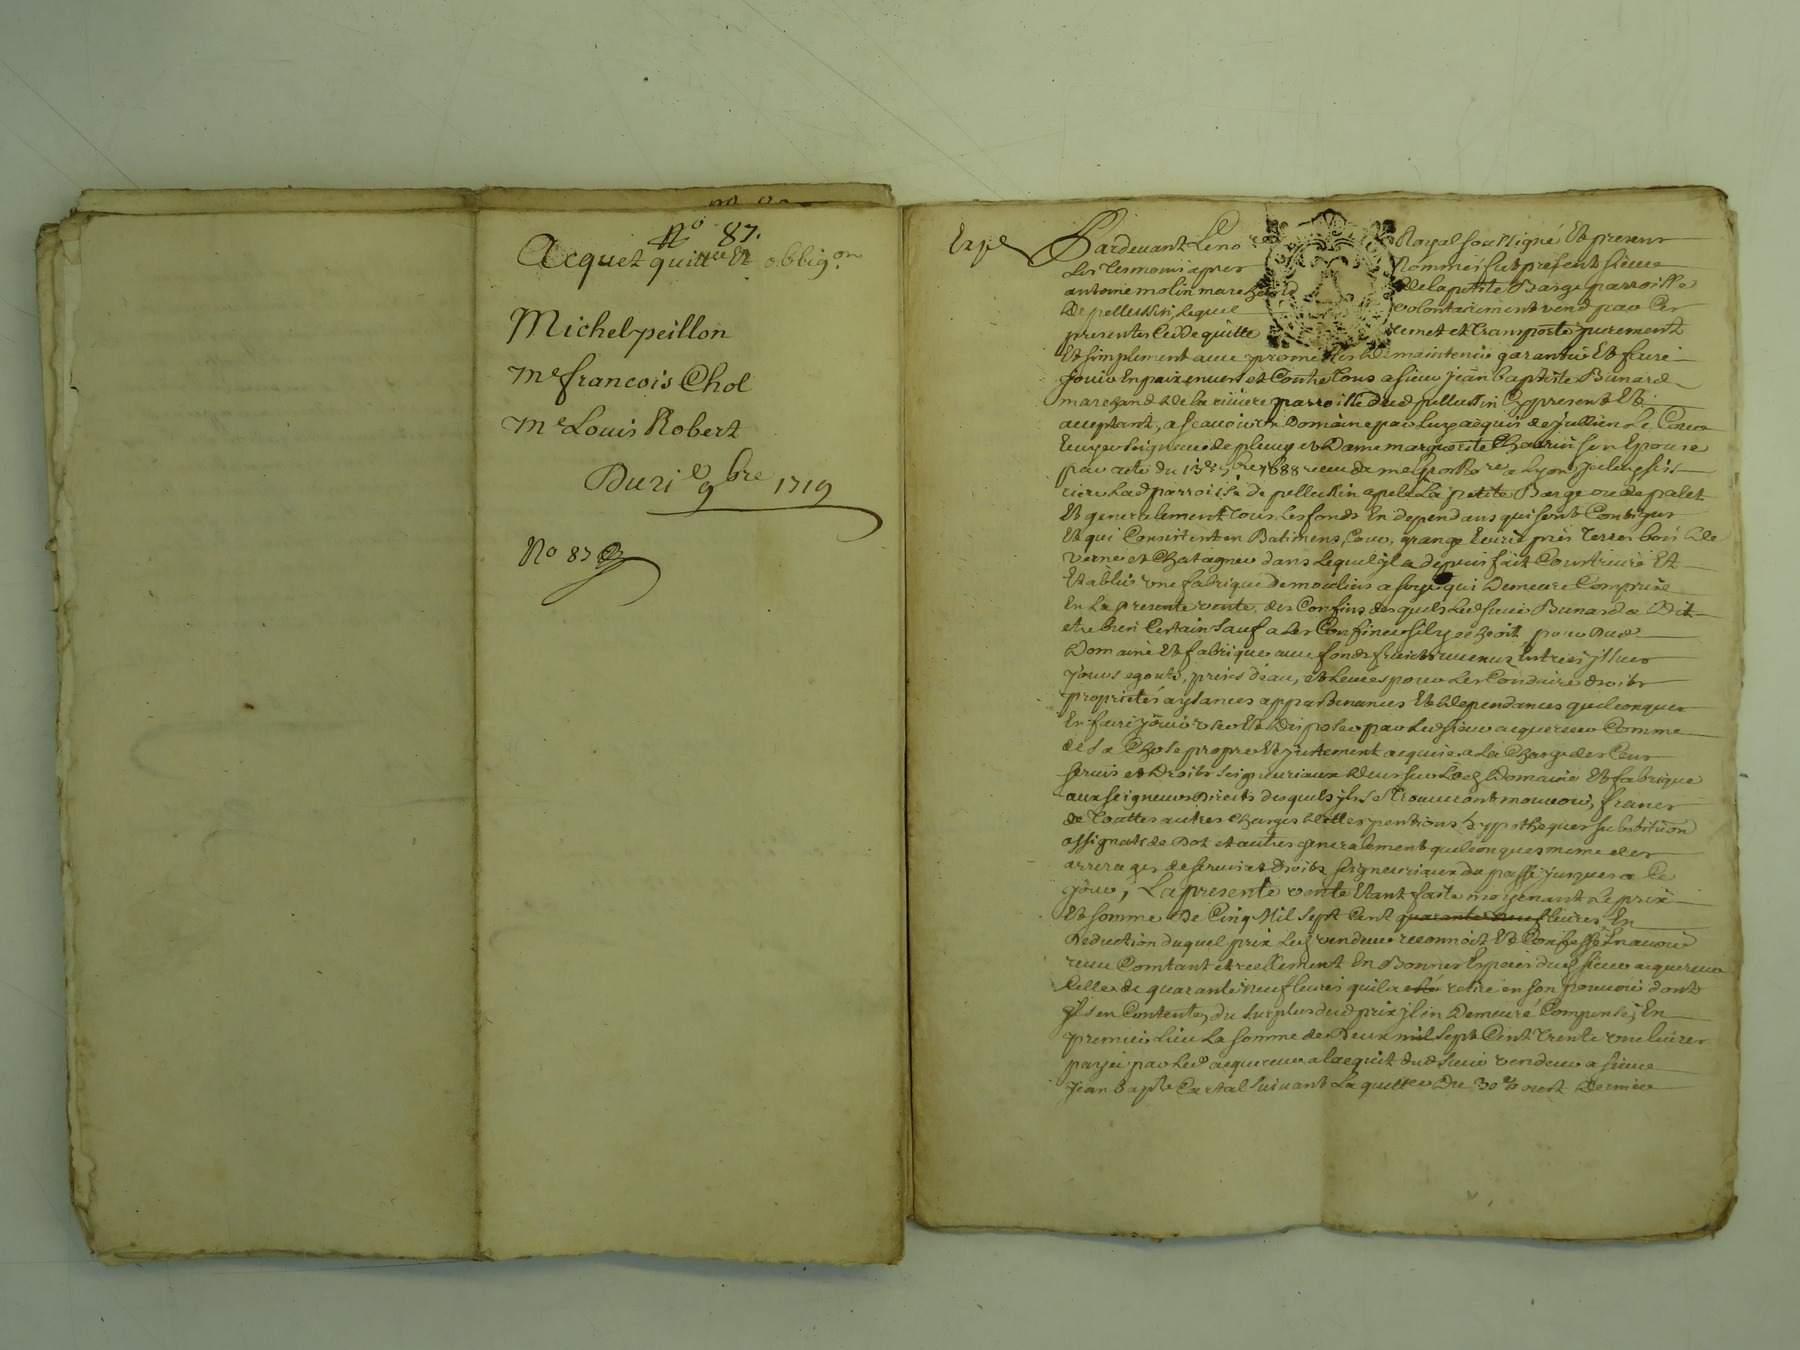 N° 87.
Acquet quittce et obligon
Michel peillon
Me francois Chol
Me Louis Robert
Du 21e 9bre 1719
No 87
Expé
Pardevant Le no re Royal soussigné Et presens
Les tesmoins apres Nommés fut present sieur
antoine molin marchand de la petite Barge parroisse
De pellussin, Lequel volontairement vend par Ces
presentes Cedde quitte remet et transporte purement
Et simplement avec promesses de maintenir garantir Et faire
jouir En paix envers et Contre tous a sieur jean baptiste Bunard
marchand de la riviere parroisse dud pellussin Cy present Et
acceptant, a scavoir Un Domaine par luy acquis de jullien Le Cour
Escuyer seigneur de pluvy et Dame marguerite son Epouse
par acte du 1688 receu de me nore a Lyon, jcelluy scis
riere Lad parroisse de pellussin apelé La petite Barge ou de palet
Et generalement tous Les fonds En dependans qui sont Contigus
Et qui Consistent en Batimens, Cour, grange Ecurie prés terres bois de
verne et Chatagner dans Lequel jl a depuis fait Construire Et
Etablir une fabrique de moulins a soye qui Demeure Comprise
En La presente vente, des Confins desquels Led sieur Bunard a Dit
etre bien Certain sauf a Les Confiner sil y echoit, pour Dud
Domaine Et fabrique avec fonds fruicts revenus Entrees jssues
jours egouts, prises d'eau, et Levees pour Les Conduire droits
proprietés aysances appartenances Et dependances quelconques
En faire jouir user Et Disposer par Led sieur acquereur Comme
de sa Chose propre Et justement acquise a La Charge des Cens
servis et Droits seigneuriaux deus sur Led Domaine Et fabrique
aux seigneurs Directs desquels jls se trouveront mouvoir, francs
de touttes autres charges dettes pentions hypotheques substitution
assignats de Dot et autres generalement quelconques meme des
arrerages de servis et Droits seigneuriaux du passé jusques a Ce
jour, La presente vente Etant faite moyenant Le prix
Et somme De Cinq Mil sept Cent quarante neuf livres, En
Deduction duquel prix Led vendeur reconnoit Et Confesse En avoir
receu Comtant et reellement En Bonnes Especes dud sieur acquereur
Celle de quarante neuf livres quil a esté retiré en son pouvoir dont
jl s'en Contente, du surplus dud prix jl en Demeure Compensé, En
premier Lieu La somme de Deux mil sept Cent trente une livres
payee par Led acquereur a lacquit dud sieur vendeur a sieur
Jean bapte Cartal suivant La quittce Du 30e aoust Dernier